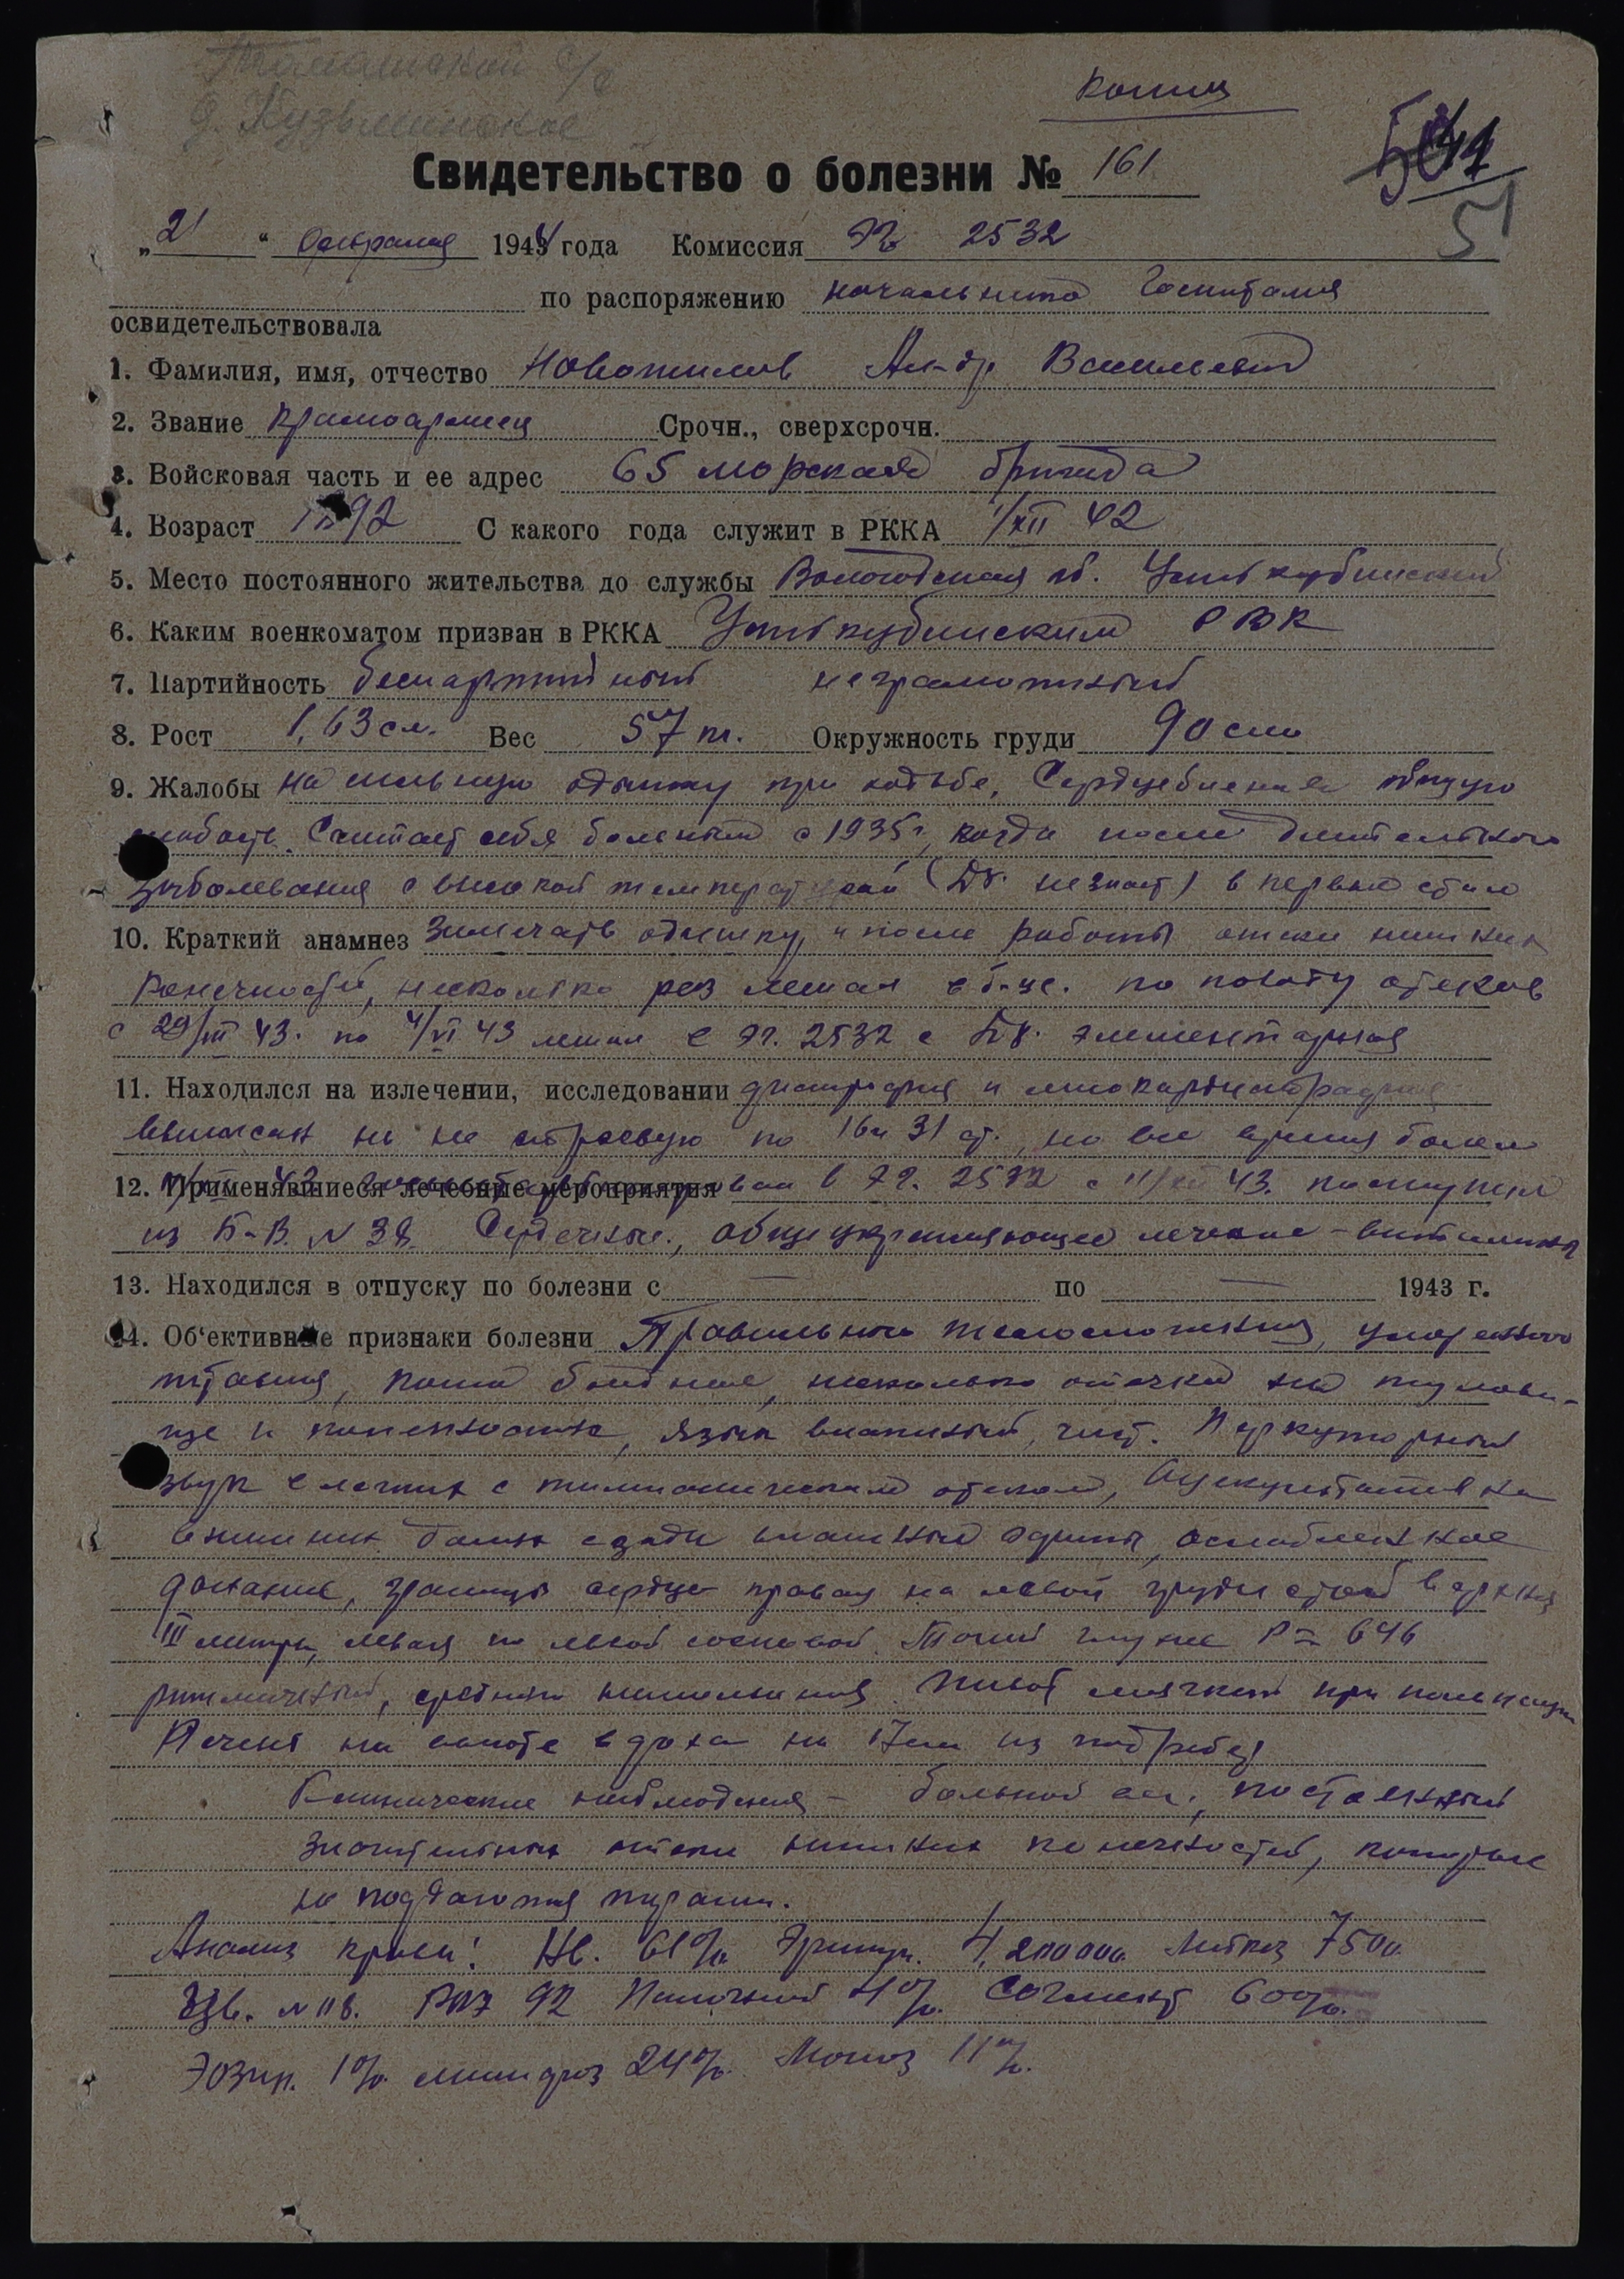 д. Кузьминское
Копия
Свидетельство о болезни № 161
51
„21“ февраля 1944 года Комиссия ЭГ 2532
по распоряжению начальника госпиталя
освидетельствовала
1. Фамилия, имя, отчество Новожилов Ал-др Васильевич
2. Звание красноармеец Срочн., сверхсрочн.
3. Войсковая часть и ее адрес 65 морская бригада
4. Возраст 1892 С какого года служит в РККА 1/XII 42
5. Место постоянного жительства до службы Вологодская об. Устькубинский
6. Каким военкоматом призван в РККА Устькубинским РВК
7. Партийность беспартийный неграмотный
8. Рост 1,63 см. Вес 57 кг. Окружность груди 90 см
9. Жалобы на сильную одышку при ходьбе, Сердцебиение общую
слабость. Считает себя больным с 1935 г, когда после длительного
заболевания с высокой температурой (Dз. не знает) впервые стал
10. Краткий анамнез замечать одышку, и после работы отеки нижних
конечностей, несколько раз лежал в б-це. по поводу отеков
с 29/III 43. по 4/VI 43 лежал в ЭГ. 2532 с Dз. элементарная
11. Находился на излечении, исследовании дистрофия и миокардиодистрофия
выписан на не строевую по 16 и 31 ст., но все время болел
12. Применявшиеся лечебные мероприятия в ЭГ. 2532 с 11/XII 43. поступил
из Б-В. N 38. Сердечные, общеукрепляющее лечение – витамины
13. Находился в отпуску по болезни с — по — 1943 г.
14. Об‘ективные признаки болезни Правильного телосложения, умеренного
питания, кожа бледная, несколько отечна на тулови-
ще и конечностях, язык влажный, чист. Перкуторный
звук в легких с тимпаническим Аускультативно
в нижних долях сзади влажные хрипы, ослабленное
дыхание, границы сердца правая на левой груди верхняя
III левая по левой сосковой. Тоны глухие P = 646
ритмический, среднего наполнения. Живот мягкий при пальпации
Печень на высоте вдоха на из подреберья
Клинические наблюдения – больной постоянный
значительные отеки нижних конечностей, которые
не поддаются терапии.
Анализ крови: Нв. 61% Эритр. 4,200000 Лейкоц 7500.
РОЭ 92 Палочков 4%. Сегмент 60%.
Эозин. 1%. лимфоз 24%. Моноз 11%.